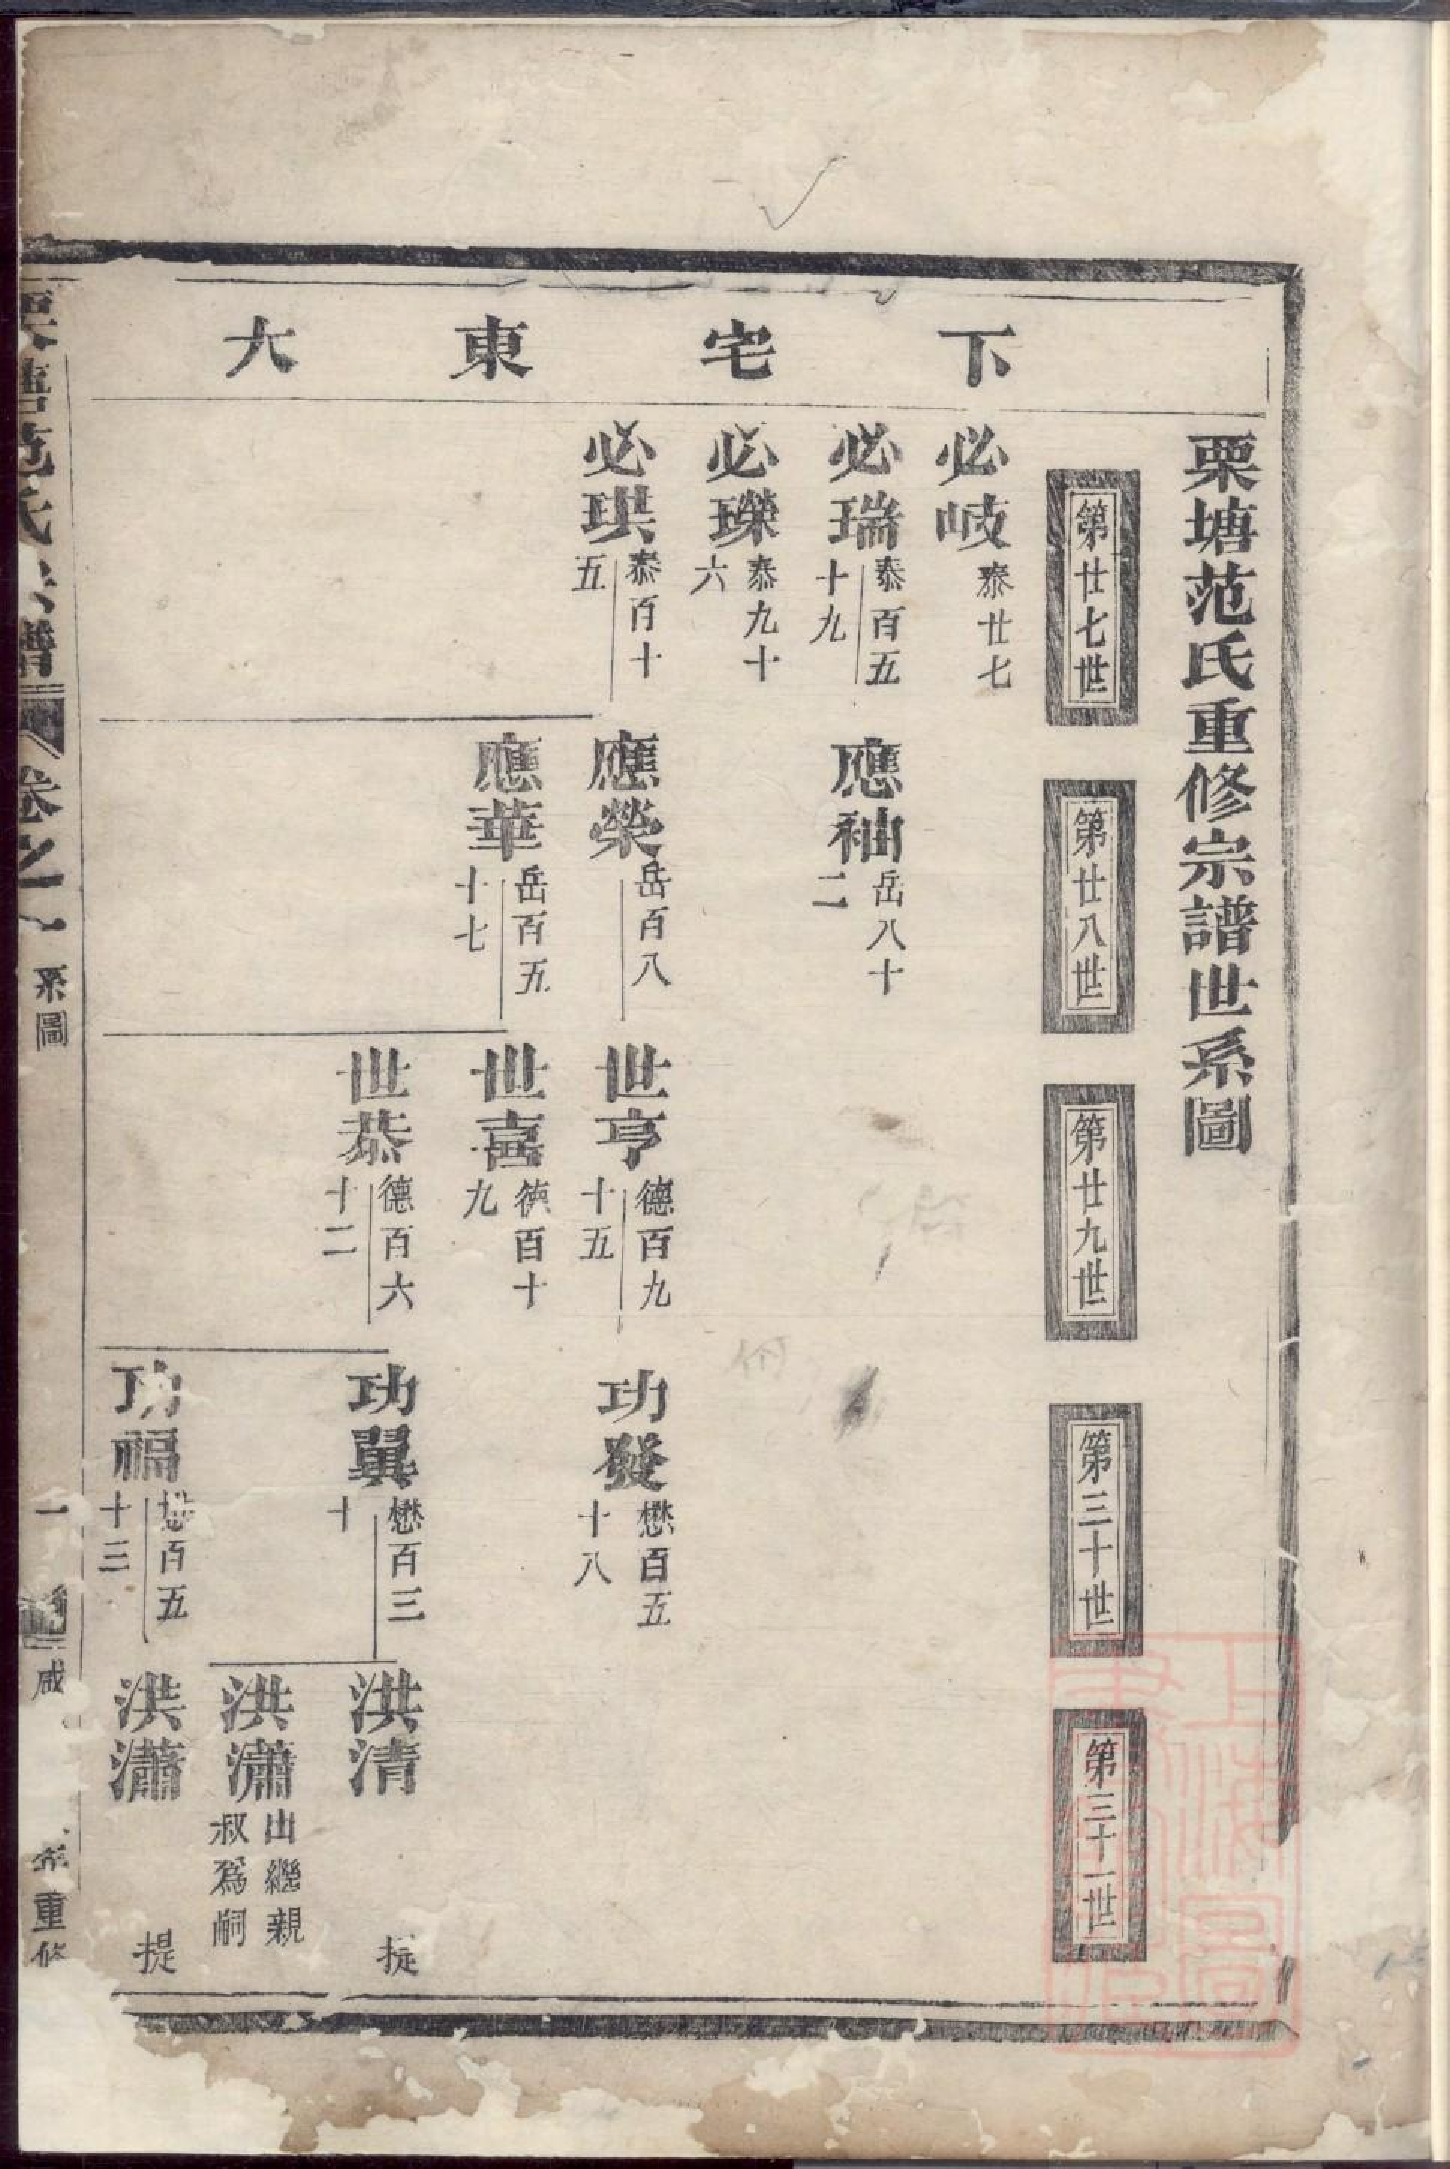 栗塘范氏重修宗譜世系圖
下宅東大
第廿七世
第廿八世
第廿九世
第三十世
第三十一世
必岐 泰廿七
必瑞 泰百五十九
必瓅 泰九十六
必珙 泰百十五
應袖 岳八十二
應榮 岳百八
應華 岳百五十七
世亨 德百九十五
世喜 德百十九
世恭 德百六十二
功發 懋百五十八
功翼 懋百三十
功福 懋百五十三
洪清 提
洪瀟 出繼親叔爲嗣
洪瀟 提
栗塘范氏宗譜
卷之一 系圖
一
咸
年重修
上海圖書館藏